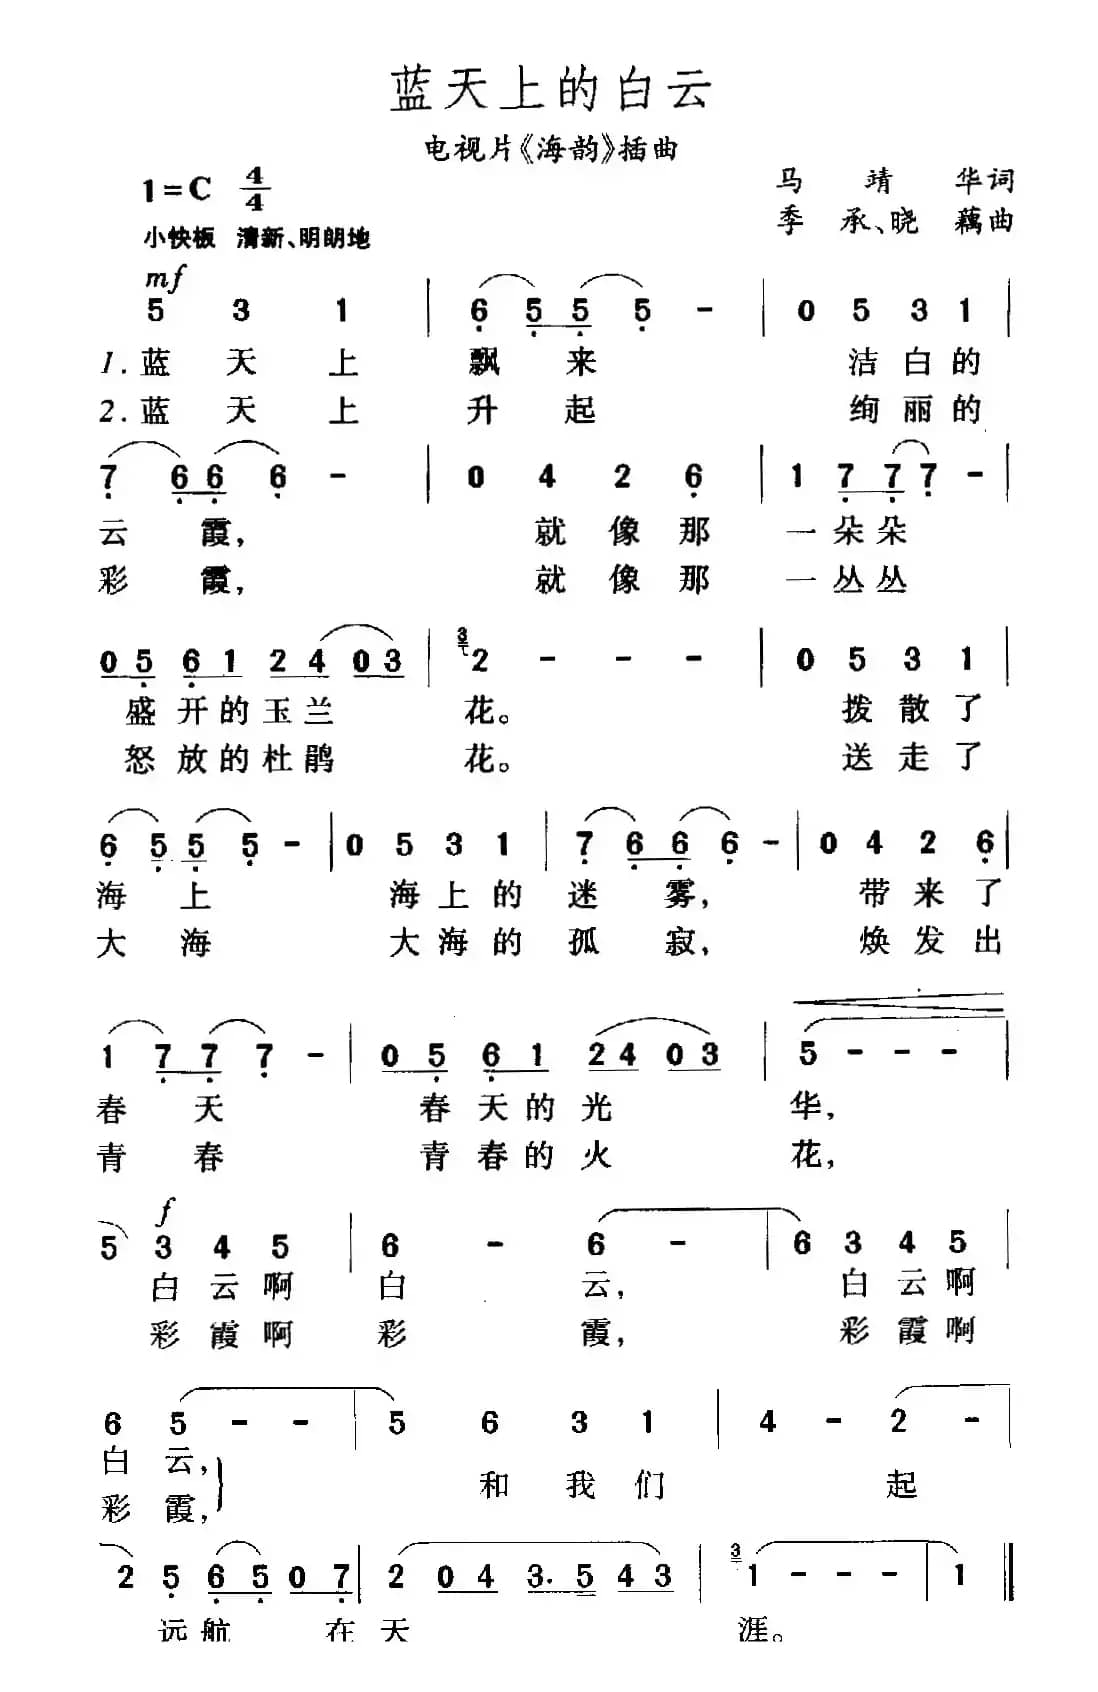 蓝天上的白云
电视片《海韵》插曲
1=C 4/4
马靖华词
季承、晓藕曲
小快板 清新、明朗地
mf
5 3 1 | 6 5 5 5 - | 0 5 3 1 |
1.蓝天上 飘来 洁白的
2.蓝天上 升起 绚丽的
7 6 6 6 - | 0 4 2 6 | 1 7 7 7 - |
云霞, 就像那 一朵朵
彩霞, 就像那 一丛丛
0 5 6 1 2 4 0 3 | 3 2 - - - | 0 5 3 1 |
盛开的玉兰 花。 拨散了
怒放的杜鹃 花。 送走了
6 5 5 5 - | 0 5 3 1 | 7 6 6 6 - | 0 4 2 6 |
海上 海上的 迷雾, 带来了
大海 大海的 孤寂, 焕发出
1 7 7 7 - | 0 5 6 1 2 4 0 3 | 5 - - - |
春天 春天的光 华,
青春 青春的火 花,
f
5 3 4 5 | 6 - 6 - | 6 3 4 5 |
白云啊 白云, 白云啊
彩霞啊 彩霞, 彩霞啊
6 5 - - | 5 6 3 1 | 4 - 2 - |
白云,
彩霞,
和我们 起
2 5 6 5 0 7 | 2 0 4 3. 5 4 3 | 3 1 - - - | 1 ‖
远航 在天 涯。